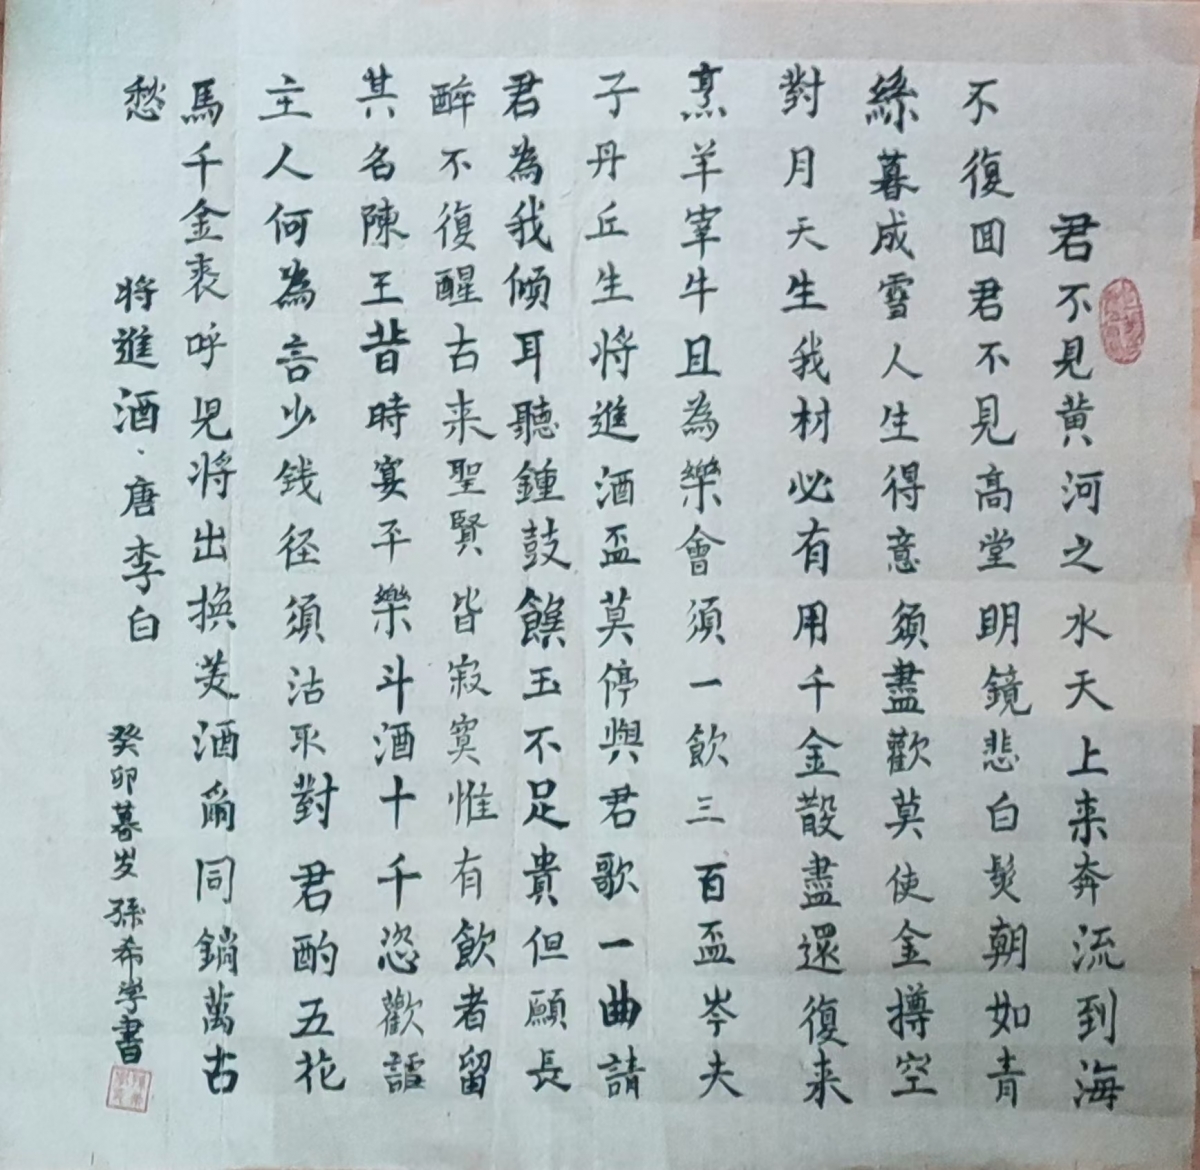 君不見黄河之水天上来奔流到海
不復囬君不見高堂明鏡悲白髮朝如青
絲暮成雪人生得意須盡歡莫使金樽空
對月天生我材必有用千金散盡還復来
烹羊宰牛且為樂會須一飲三百盃岑夫
子丹丘生将進酒盃莫停與君歌一曲請
君為我傾耳聽鍾鼓饌玉不足貴但願長
醉不復醒古来聖賢皆寂寞惟有飲者留
其名陳王昔時宴平樂斗酒十千恣歡謔
主人何為言少銭径須沽取對君酌五花
馬千金裘呼児将出換羙酒爾同銷萬古
愁
将進酒·唐李白
癸卯暮岁孫希學書